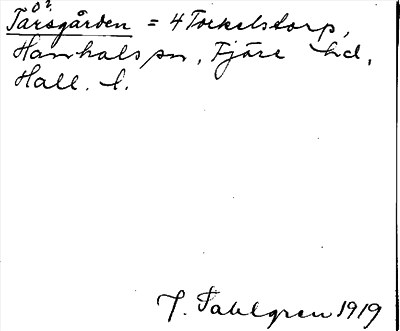 Tårsgården = 4 Torkelstorp,
Hanhals sn, Fjäre hd,
Hall. l.
T. Dahlgren 1919